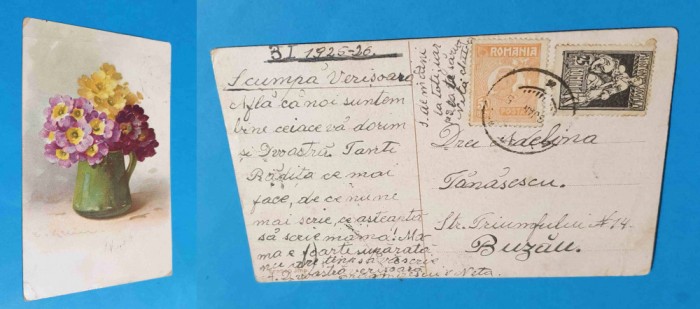 31 1925-26.
Scumpă Verișoară
Află că noi suntem
bine ceiace vă dorim
și Dvoastră. Tanti
Rădița ce mai
face, de ce nu ne
mai scrie, ce așteantă
să scrie mama! Ma
ma e foarte supărată
nu are timp să vă scrie
verișoară
Neta.
la toți, iar
ROMANIA
Drei Adelina
Tănăsescu.
Str. Triumfului N 14.
Buzău.